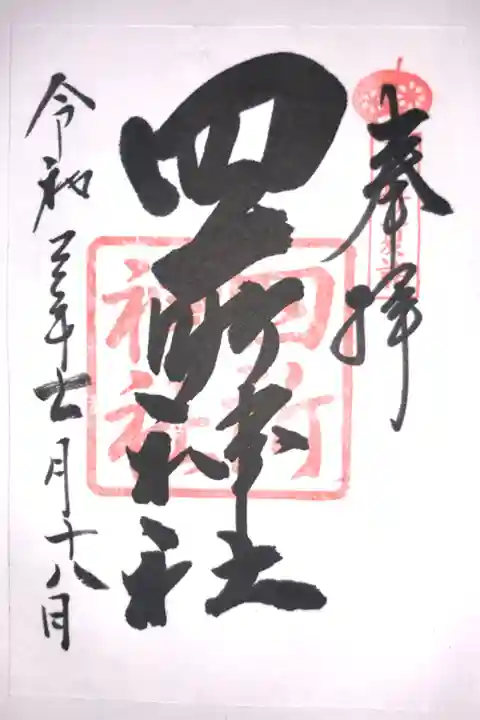 奉拝
四所神社
四所
神社
令和三年十一月十八日